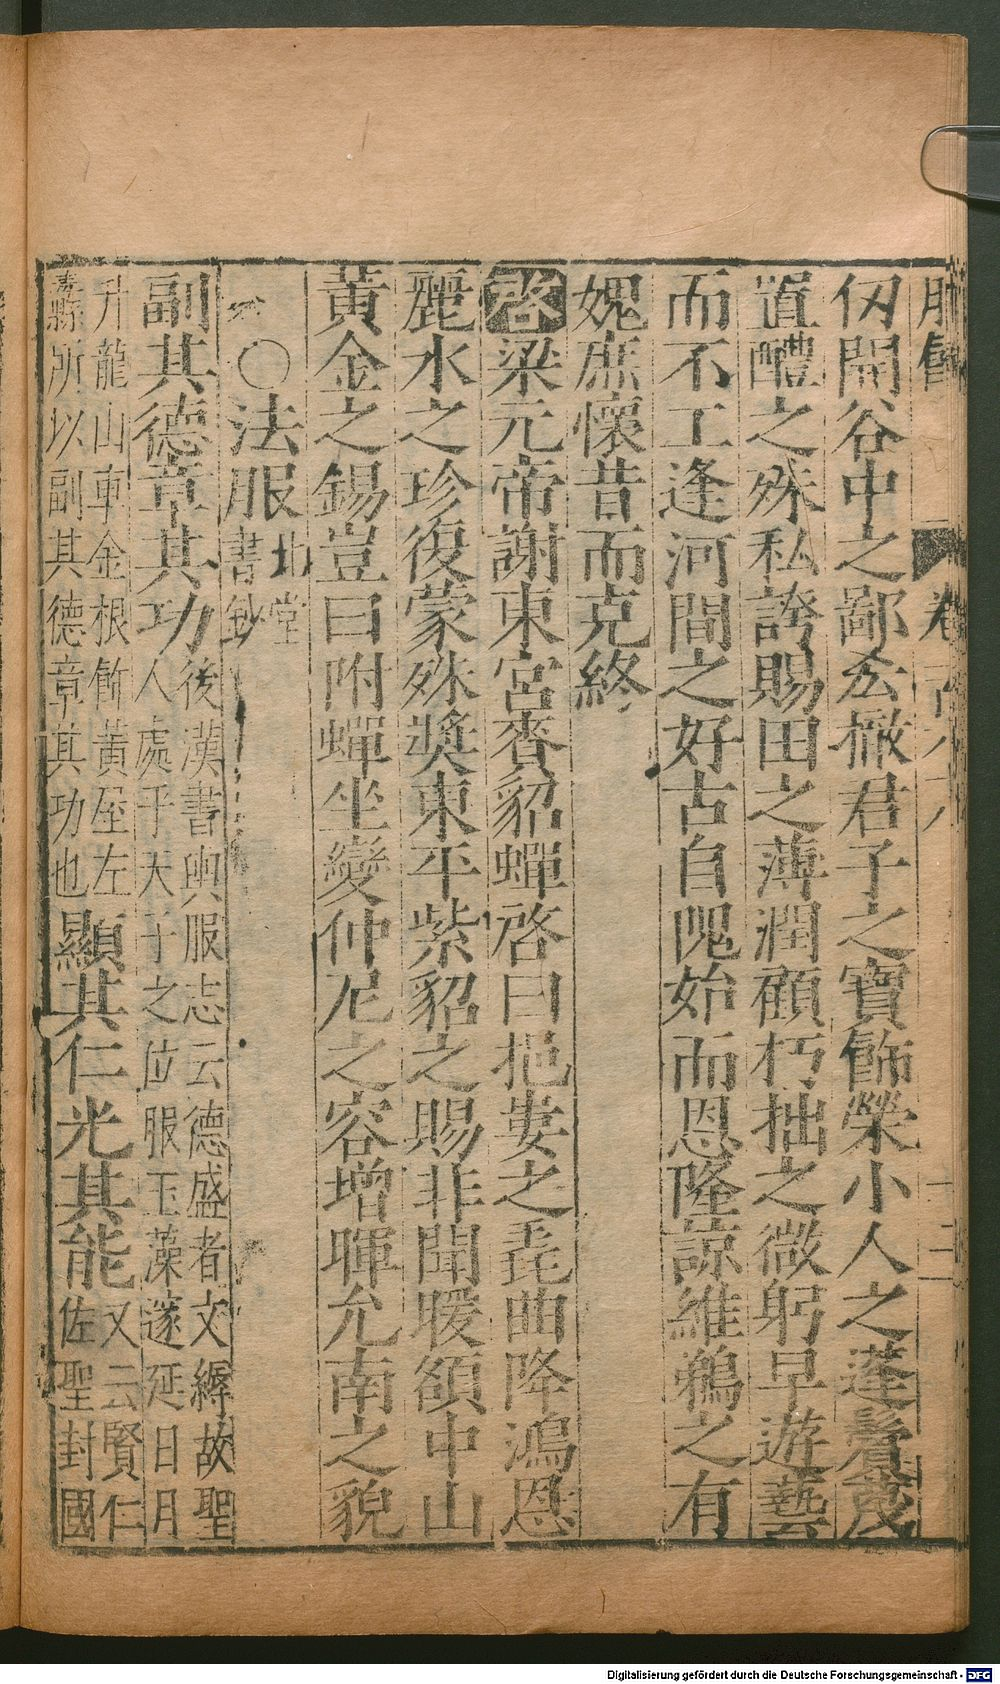 仞開谷中之鄙厺撤君子之寶飾榮小人之蓬鬢茂
置醴之殊私誇賜田之薄潤顧朽拙之微躬早遊藝
而不工逢河間之好古自隗始而恩隆諒維鵜之有
媿庶懷昔而克終
啓梁元帝謝東宮賚貂蟬啓曰挹婁之毳曲降鴻恩
麗水之珍復蒙殊奬東平紫貂之賜非聞暖額中山
黃金之錫豈曰附蟬坐變仲尼之容增暉允南之貌
〇法服北堂書鈔
副其德章其功後漢書輿服志云德盛者文縟故聖人處乎天子之位服玉藻邃延日月
升龍山車金根飾黃屋左纛所以副其德章其功也顯其仁光其能又云賢仁佐聖封國
Digitalisierung gefördert durch die Deutsche Forschungsgemeinschaft - DFG